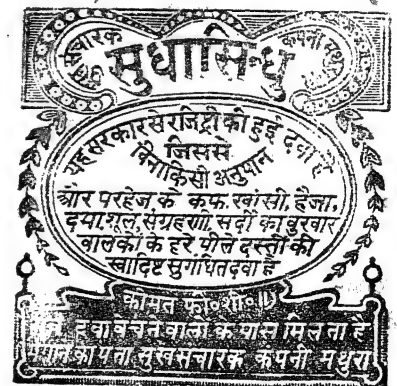 सुखसंचारक
सुधासिन्धु
कंपनी मथुरा
यह सरकार से रजिष्ट्री की हुई दवा है
जिससे
बिना किसी अनुपान
और परहेज के कफ, खांसी, हैजा,
दमा, शूल, संग्रहणी, सर्दी का बुखार
बालकों के हरे पीले दस्तों की
स्वादिष्ट सुगंधित दवा है
कीमत फी॰ शी॰ ॥)
दवा बेचनेवालों के पास मिलता है
मंगाने का पता सुखसंचारक कंपनी मथुरा